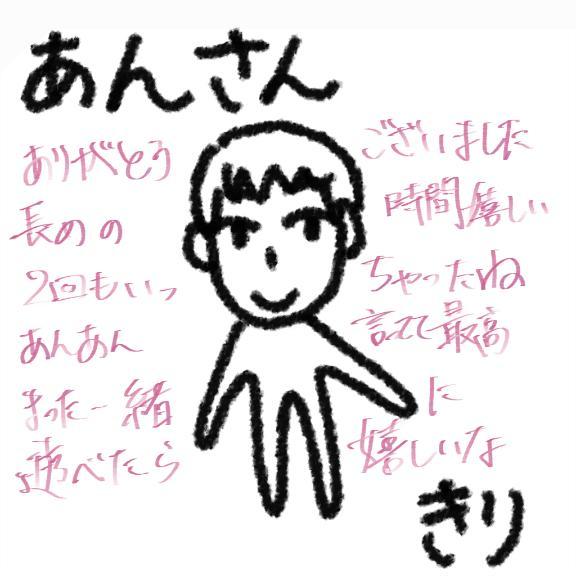 あんさん
ありがとう ございました
長めの 時間嬉しい
2回もいっ ちゃったね
あんあん 言えて最高
また一緒 に
遊べたら 嬉しいな
きり